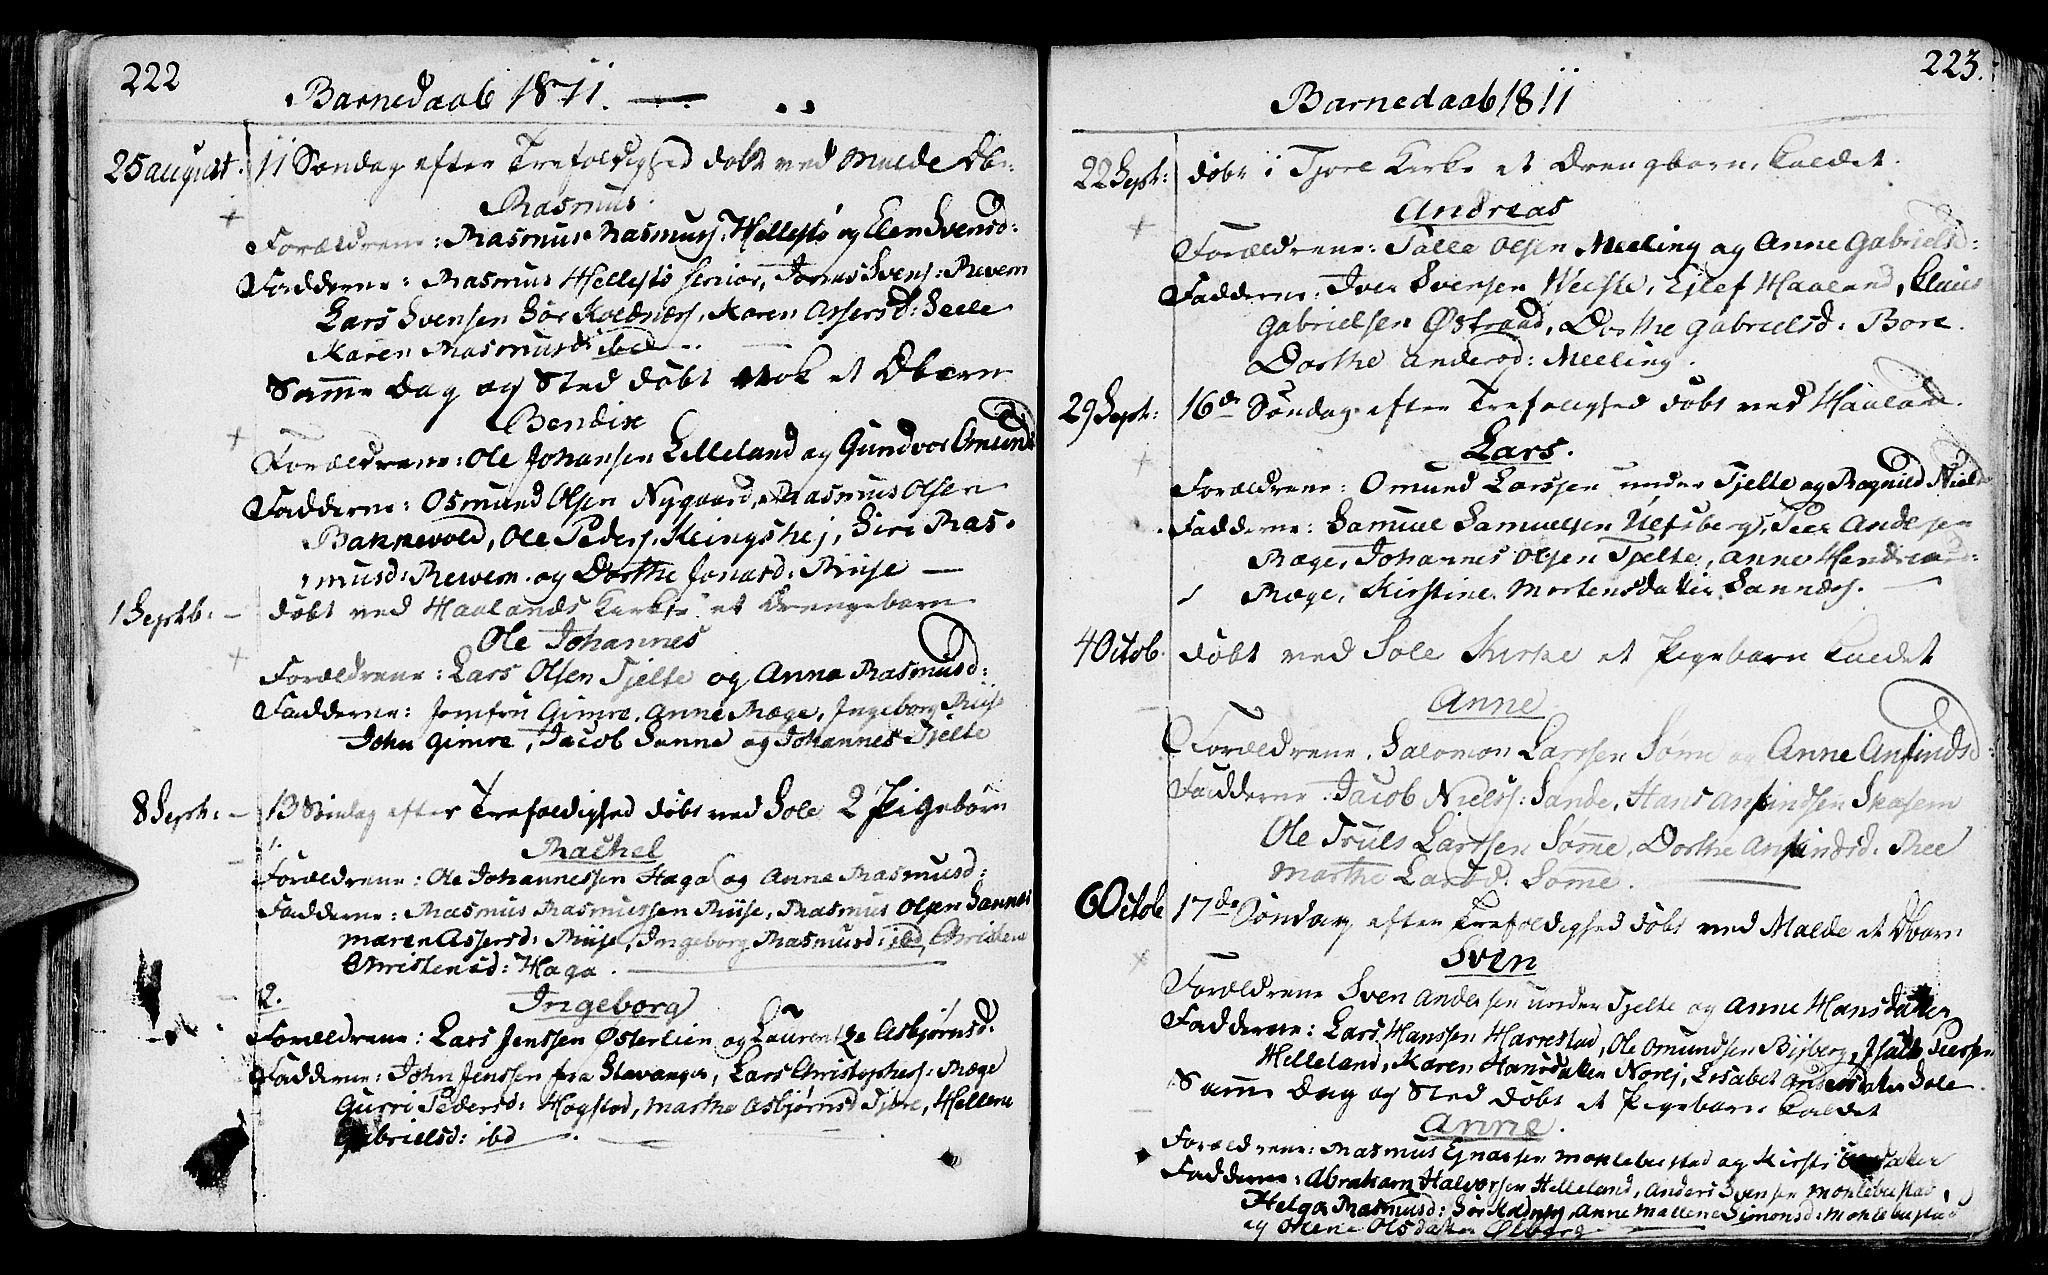 222
Barnedaab 1811.
25 august. 11 Søndag efter Trefoldighed døbt ved Malde Dbn:
Rasmus.
Forældrene: Rasmus Rasmusj: Hellestø og Elen Svensd:
Fadderne: Rasmus Hellestø senior, Jonas Svensj: Revem
Lars Svensen Sør Kolnæs, Karen Assersd: Seele
Karen Rasmusd: ibd
Samme Dag og Sted døbt et Dbarn
Bendix
Forældrene: Ole Johansen Lilleland og Gundvor Omunds
Fadderne: Osmund Olsen Nygaard, Rasmus Olsen
Bakkevold, Ole Pedersj. Kingshej, Siri Ras-
musd: Rewem. og Dorthe Jonasd: Riise
1 Septb: døbt ved Haalands Kirke et Drengebarn
Ole Johannes
Forældrene: Lars Olsen Tjelte og Anna Rasmusd:
Fadderne: Jomfru Gimre, Anne Ræge, Ingeborg Riis
John Gimre, Jacob Sunne og Johannes Tjelte
8 Septr: 13 Søndag efter Trefoldighed døbt ved Sole 2 Pigebørn
1.
Rachel
Forældrene: Ole Johannessen Haga og Anne Rasmusd:
Fadderne: Rasmus Rasmussen Riise, Rasmus Olsen Sannes
Maren Assersd: Riise, Ingeborg Rasmusd: ibd, Christene
Christensd: Haga.
2.
Ingeborg
Forældrene: Lars Jenssen Østerlien og Laurentze Asbjørnsd:
Fadderne: John Jenssen fra Stavanger, Lars Christophersj: Ræge
Gurri Pedersd: Hogstad, Marthe Asbjørnsd Tjore, Hellene
Gabrielsd: ibd
223.
Barnedaab 1811
22 Sept: døbt i Tjore Kirke et Drengbarn, kaldet.
Andreas
Forældrene: Tølle Olsen Meeling og Anne Gabrielsd:
Fadderne: Iver Svensen, Ejlef Haaland, Claus
Gabrielsen Østraad, Dorthe Gabrielsd: Bore.
Dorthe Andersd: Meeling.
29 Sept: 16de Søndag efter Trefolighed døbt ved Haaland.
Lars.
Forældrene: Omund Larssen under Tjelte og Ragnild Niels
Fadderne: Samuel Samuelsen, Peer Andersen
Ræge, Johannes Olsen Tjelte, Anne
Ræge, Kirstine Mortensdatter Sannes.
4 Octob. døbt ved Sole Kirke et Pigebarn kaldet
Anne
Forældrene. Salomon Larssen Sømme og Anne Anfindsd:
Fadderne. Jacob Nielsj: Sande, Hans Anfindsen Skasem
Ole Truls Larssen Sømme, Dorthe Anfindsd: Ree
Marthe Larsd: Sømme.
6 Octob 17de Søndag efter Trefoldighed døbt ved Malde et Dbarn
Sven
Forældrene Sven Andersen under Tjelte og Anne Hansdatter
Fadderne: Lars Hanssen Harrestad, Ole Omundsen Bijberg, Isack Peersen
Helleland, Karen Hansdatter Norej, Lisabet Andersdatter Sole
Samme Dag og Sted døbt et Pigebarn kaldet
Anne.
Forældrene: Rasmus Ejnarsen Mohlebustad og Kirsti
Fadderne: Abraham Halvorsen Helleland, Anders Svensen Mohlebustad,
Helga Rasmusd: Sør Kolnes, Anne Mallene Simonsd: Mohlebustad
og Olsdatter Ølberg